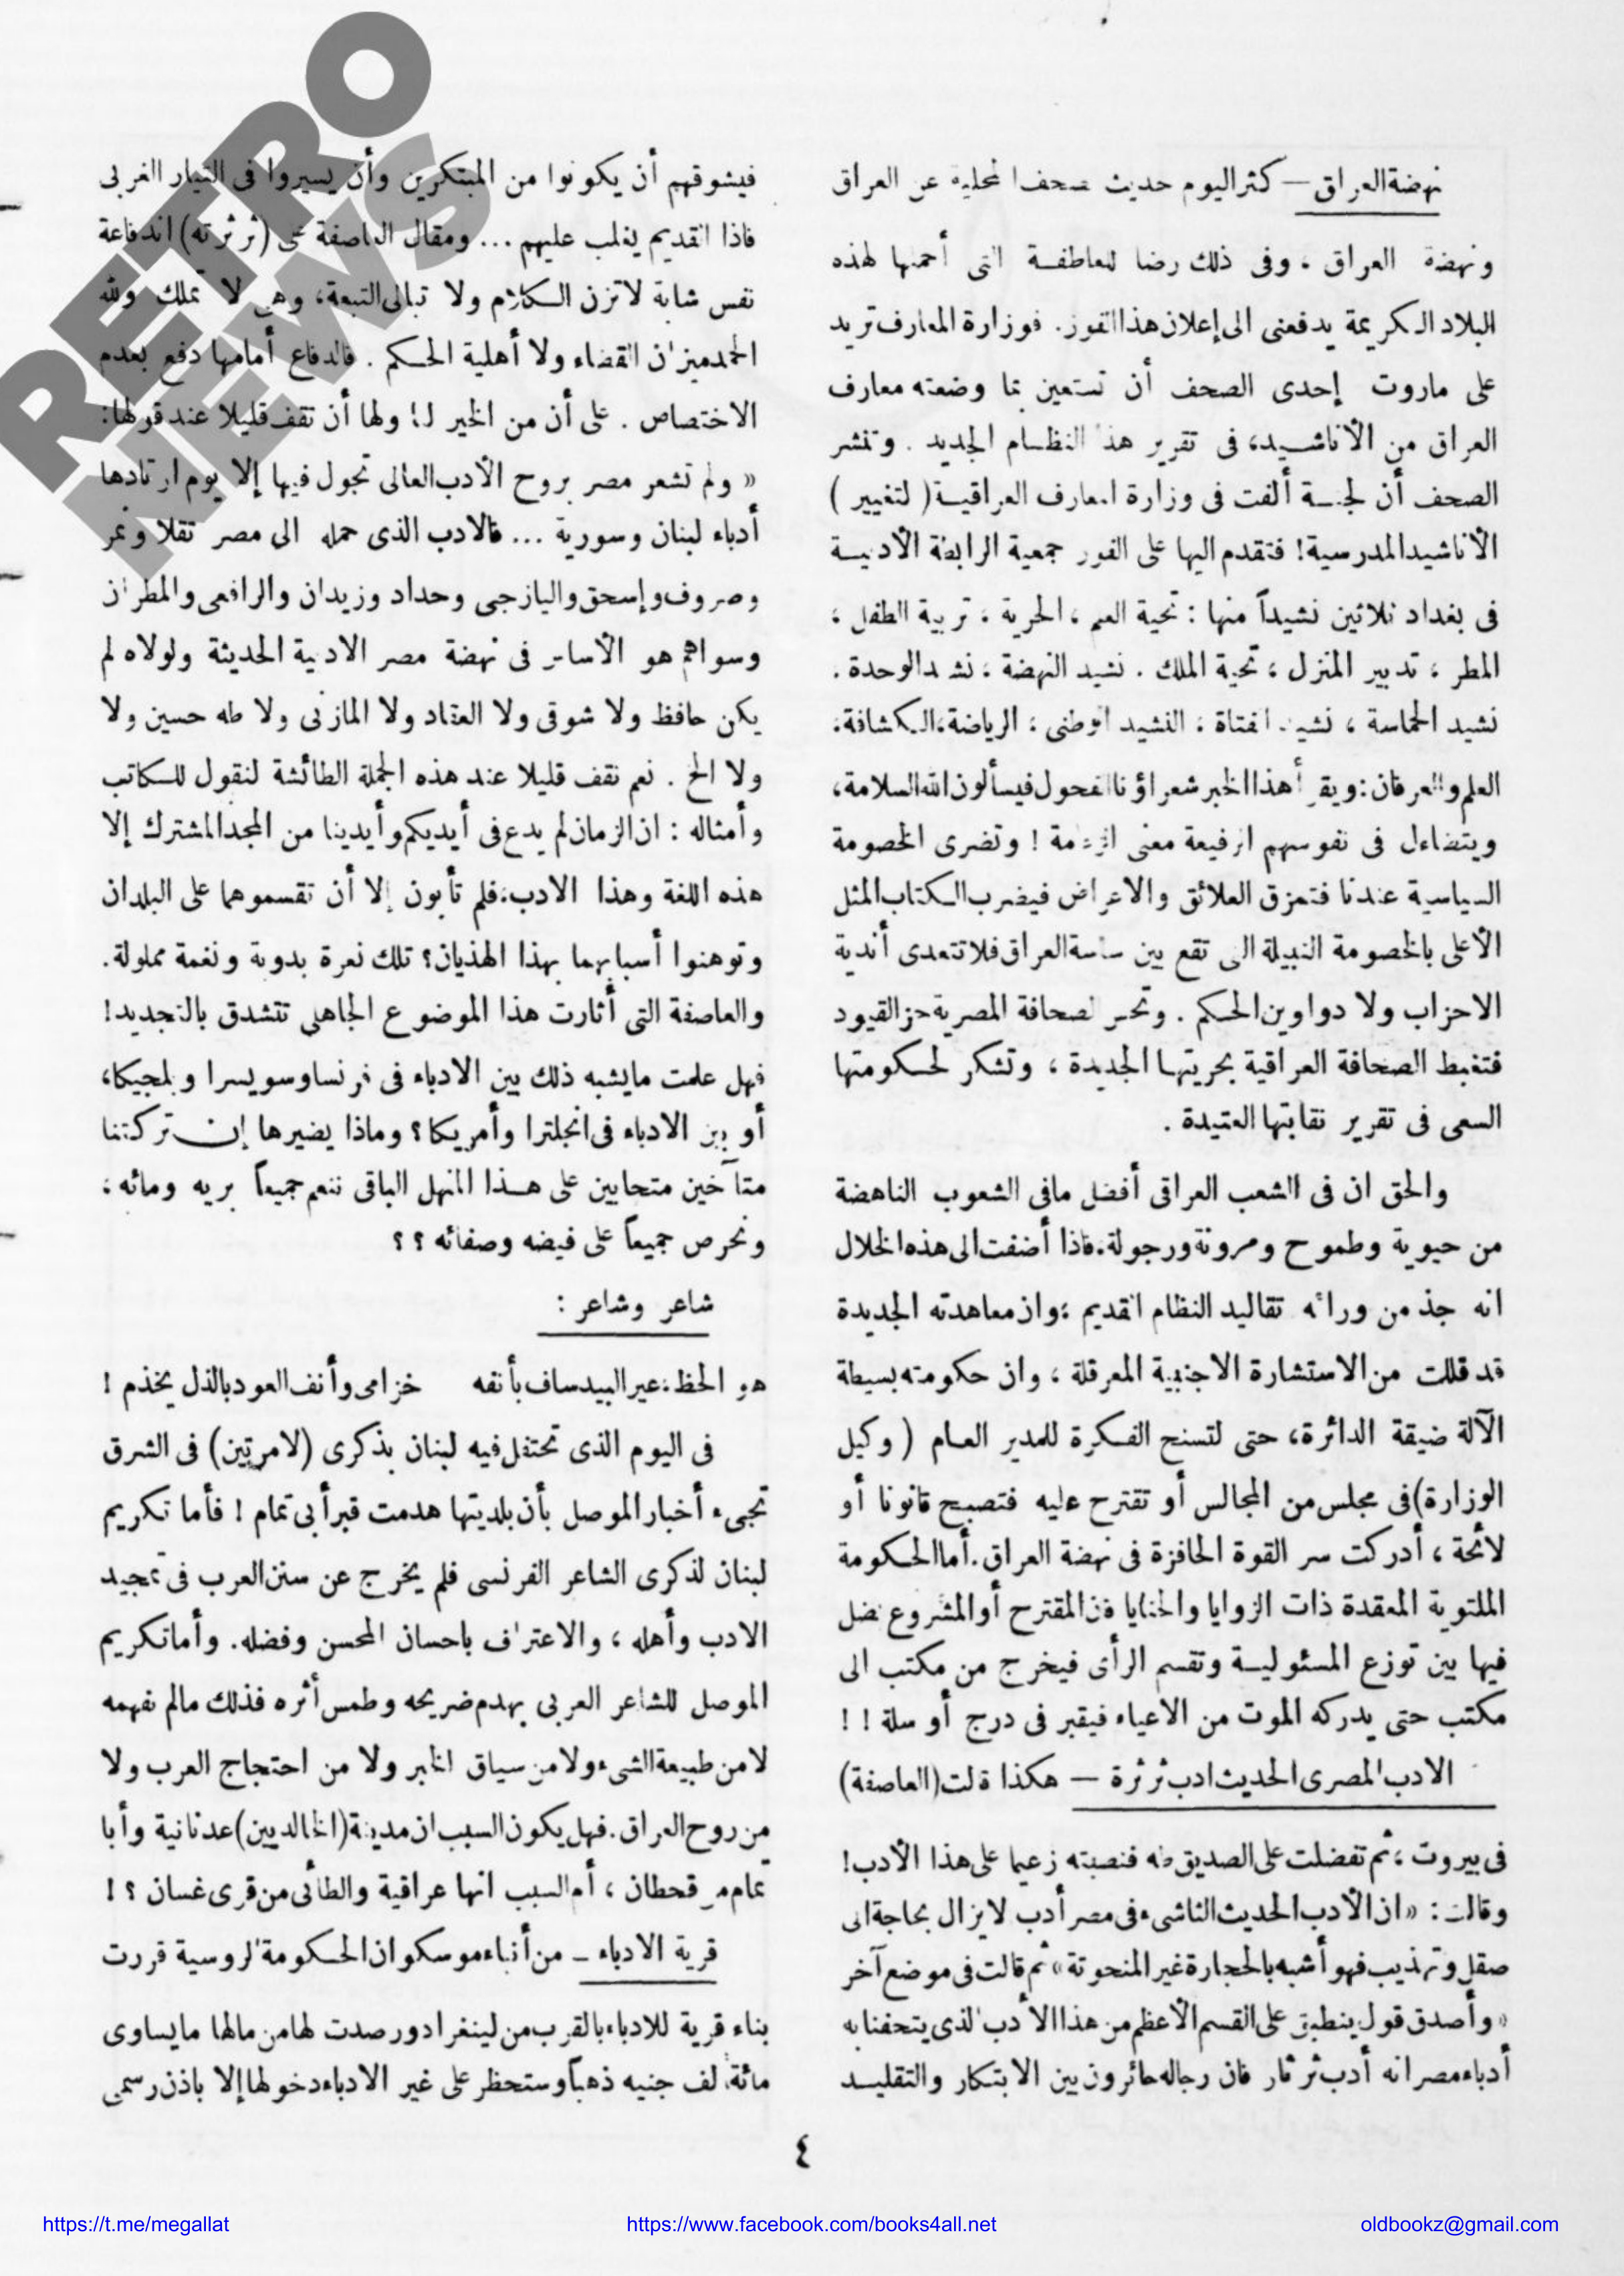 نهضة العراق — كثر اليوم حديث صحفنا المحلية عن العراق
ونهضة العراق ، وفى ذلك رضا للعاطفة التى أحملها لهذه
البلاد الكريمة يدفعنى الى إعلان هذا الفوز. فوزارة المعارف تريد
على ماروت إحدى الصحف أن تستعين بما وضعته معارف
العراق من الأناشيد، فى تقرير هذا النظام الجديد . وتنشر
الصحف أن لجنة ألفت فى وزارة المعارف العراقية ( لتغيير )
الأناشيد المدرسية! فتقدم اليها على الفور جمعية الرابطة الأدبية
فى بغداد ثلاثين نشيداً منها : تحية العلم ، الحرية ، تربية الطفل ،
المطر ، تدبير المنزل ، تحية الملك . نشيد النهضة ، نشيد الوحدة .
نشيد الحماسة ، نشيد الفتاة ، النشيد الوطنى ، الرياضة، الكشافة،
العلم والعرفان: ويقرأ هذا الخبر شعراؤنا الفحول فيسألون الله السلامة،
ويتضاءل فى نفوسهم الرفيعة معنى ! وتضرى الخصومة
السياسية عندنا فتمزق العلائق والاعراض فيضرب الكتاب المثل
الأعلى بالخصومة النبيلة التى تقع بين ساسة العراق فلا تتعدى أندية
الاحزاب ولا دواوين الحكم . وتحس الصحافة المصرية حز القيود
فتغبط الصحافة العراقية بحريتها الجديدة ، وتشكر لحكومتها
السعى فى تقرير نقابتها العتيدة .
والحق ان فى الشعب العراقى أفضل مافى الشعوب الناهضة
من حيوية وطموح ومرونة ورجولة. فاذا أضفت الى هذه الخلال
انه جذ من ورائه تقاليد النظام القديم ؛ وان معاهدته الجديدة
قد قللت من الاستشارة الاجنبية المعرقلة ، وان حكومته بسيطة
الآلة ضيقة الدائرة، حتى لتسنح الفكرة للمدير العام ( وكيل
الوزارة) فى مجلس من المجالس أو تقترح عليه فتصبح قانونا أو
لائحة ، أدركت سر القوة الحافزة فى نهضة العراق. أما الحكومة
الملتوية المعقدة ذات الزوايا والحنايا فان المقترح أو المشروع يضل
فيها بين توزع المسئولية وتقسم الرأى فيخرج من مكتب الى
مكتب حتى يدركه الموت من الاعياء فيقبر فى درج أو سلة ! !
الادب المصرى الحديث ادب ثرثرة — هكذا قالت (العاصفة)
فى بيروت ؛ ثم تفضلت على الصديق طه فنصبته زعيما على هذا الأدب!
وقالت: « ان الأدب الحديث الناشىء فى مصر أدب لا يزال بحاجة الى
صقل وتهذيب فهو أشبه بالحجارة غير المنحوتة» ثم قالت فى موضع آخر
« وأصدق قول ينطبق على القسم الأعظم من هذا الأدب الذى يتحفنا به
أدباء مصر انه أدب ثرثار فان رجاله حائرون بين الابتكار والتقليد
فيشوقهم أن يكونوا من المبتكرين وأن يسيروا فى التيار الغربى
فاذا القديم يغلب عليهم ... ومقال العاصفة على (ثرثرته) اندفاعة
نفس شابة لاتزن الكلام ولا تبالى التبعة، وهى لا تملك ولله
الحمد ميزان القضاء ولا أهلية الحكم . فالدفاع أمامها دفع بعدم
الاختصاص . على أن من الخير لنا ولها أن نقف قليلا عند قولها:
« ولم تشعر مصر بروح الأدب العالى تجول فيها إلا يوم ارتادها
أدباء لبنان وسورية ... فالادب الذى حمله الى مصر تقلا ونمر
وصروف وإسحق واليازجى وحداد وزيدان والرافعى والمطران
وسواهم هو الأساس فى نهضة مصر الادبية الحديثة ولولاه لم
يكن حافظ ولا شوقى ولا العقاد ولا المازنى ولا طه حسين ولا
ولا الخ . نعم نقف قليلا عند هذه الجملة الطائشة لنقول للكاتب
وأمثاله : ان الزمان لم يدع فى أيديكم وأيدينا من المجد المشترك إلا
هذه اللغة وهذا الادب، فلم تأبون إلا أن تقسموهما على البلدان
وتوهنوا أسبابهما بهذا الهذيان؟ تلك نعرة بدوية ونغمة مملولة.
والعاصفة التى أثارت هذا الموضوع الجاهلى تتشدق بالتجديد!
فهل علمت مايشبه ذلك بين الادباء فى فرنسا وسويسرا وبلجيكا،
أو بين الادباء فى انجلترا وأمريكا؟ وماذا يضيرها إن تركتنا
متآخين متحابين على هذا المنهل الباقى ننعم جميعاً بريه ومائه ،
ونحرص جميعاً على فيضه وصفائه ؟ ؟
شاعر وشاعر :
هو الحظ: عير البيد ساف بأنفه خزامى وأنف العود بالذل يخذم !
فى اليوم الذى تحتفل فيه لبنان بذكرى (لامرتين) فى الشرق
تجىء أخبار الموصل بأن بلديتها هدمت قبر أبى تمام ! فأما تكريم
لبنان لذكرى الشاعر الفرنسى فلم يخرج عن سنن العرب فى تمجيد
الادب وأهله ، والاعتراف باحسان المحسن وفضله. وأما تكريم
الموصل للشاعر العربى بهدم ضريحه وطمس أثره فذلك مالم نفهمه
لا من طبيعة الشىء ولا من سياق الخبر ولا من احتجاج العرب ولا
من روح العراق. فهل يكون السبب ان مدينة (الخالديين) عدنانية وأبا
تمام من قحطان ، أم السبب انها عراقية والطائى من قرى غسان ؟ !
قرية الادباء – من أنباء موسكو ان الحكومة الروسية قررت
بناء قرية للادباء بالقرب من لينغراد ورصدت لها من مالها مايساوى
مائة ألف جنيه ذهباً وستحظر على غير الادباء دخولها إلا باذن رسمى
٤
RETRO
NEWS
https://t.me/megallat
https://www.facebook.com/books4all.net
oldbookz@gmail.com